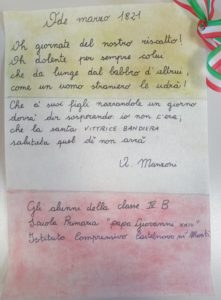 Idi marzo 1821
Oh giornate del nostro riscatto!
Oh dolente per sempre colui
che da lunge dal labbro d'altrui,
come un uomo straniero le udrà!
Che a' suoi figli narrandole un giorno
dovrà dir sospirando io non c'era;
che la santa VITTRICE BANDIERA
salutata quel dì non avrà
A. Manzoni
Gli alunni della classe IV B
Scuola Primaria "papa Giovanni XXIII"
Istituto Comprensivo Castelnovo ne' Monti